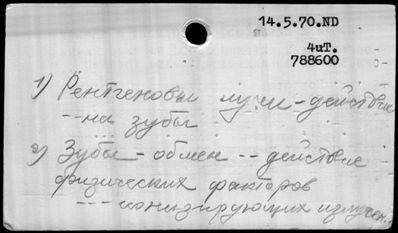 14.5.70.ND
4иТ.
788600
1) Рентгеновы лучи - действие
-- на зубы
2) Зубы - обмен -- действие
физических факторов
--- ионизирующих излучен.